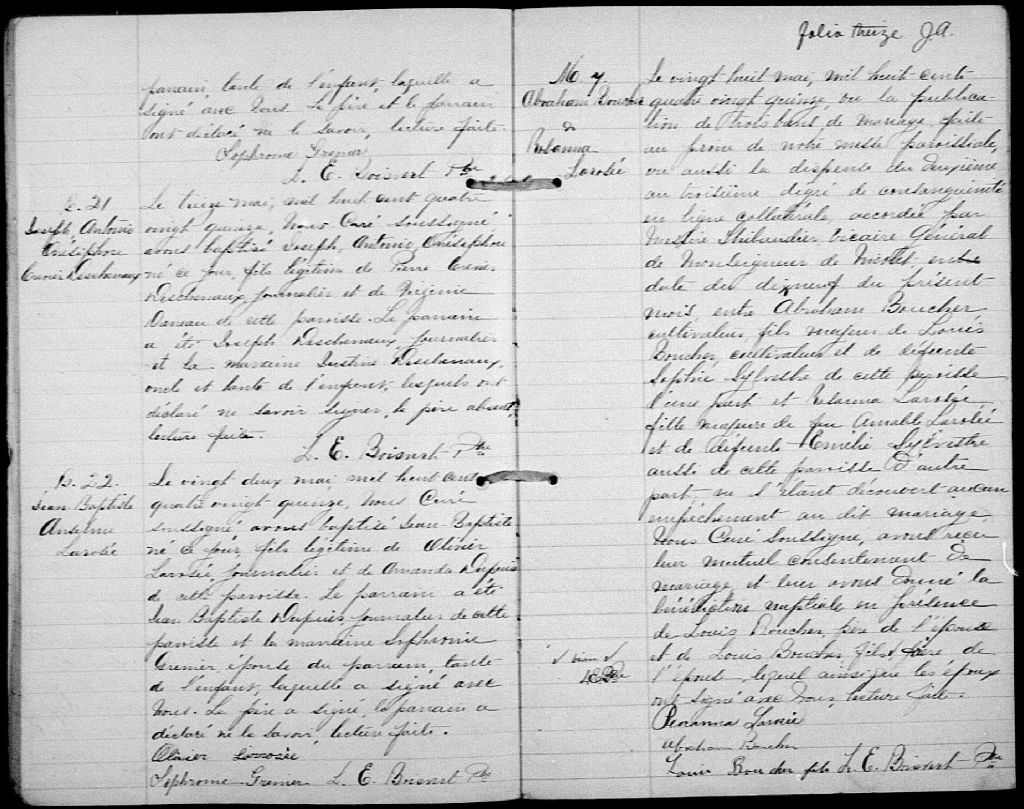 parrain, tante de l'enfant, laquelle a
signé avec Nous. Le père et le parrain
ont déclaré ne le savoir, lecture faite.
Sophronie Grenier
L. E. Boisvert Ptre
B. 21
Joseph Antonio
Onésiphore
Grenier Deschenaux
Le treize mai, mil huit cent quatre
vingt quinze, Nous Curé soussigné
avons baptisé Joseph, Antonio, Onésiphore
né ce jour, fils légitime de Pierre Grenier
Deschenaux, journalier et de Virginie
Daneau de cette paroisse. Le parrain
a été Joseph Deschenaux, journalier
et la marraine Justine Deschenaux,
oncle et tante de l'enfant, lesquels ont
déclaré ne savoir signer, le père absent,
lecture faite.
L. E. Boisvert Ptre
B. 22.
Jean Baptiste
Anselme
Larosée
Le vingt deux mai, mil huit cent
quatre vingt quinze, Nous Curé
soussigné avons baptisé Jean-Baptiste
né ce jour, fils légitime de Olivier
Larosée, journalier et de Amanda Dupuis
de cette paroisse. Le parrain a été
Jean Baptiste Dupuis, journalier de cette
paroisse et la marraine Sophronie
Grenier, épouse du parrain, tante
de l'enfant, laquelle a signé avec
Nous. Le père a signé, le parrain a
déclaré ne le savoir, lecture faite.
Olivier Larosée
Sophronie Grenier L. E. Boisvert Ptre
folio treize J.A.
M. 7
Abraham Boucher
&
Rosanna
Larosée
Le vingt huit mai, mil huit cent
quatre vingt quinze, vu la publica-
tion de trois bans de mariage faite
au prone de notre messe paroissiale,
vu aussi la dispense du deuxième
au troisième dégré de consanguinité
en ligne collatérale, accordée par
Messire Thibaudier, Vicaire Général
de Monseigneur de Nicolet en
date du dixneuf du présent
mois, entre Abraham Boucher
cultivateur, fils majeur de Louis
Boucher, cultivateur et de défunte
Sophie Sylvestre de cette paroisse
l'une part et Rosanna Larosée
fille majeure de feu Amable Larosée
et de défunte Emélie Sylvestre
aussi de cette paroisse d'autre
part, ne s'étant découvert aucun
empêchement au dit mariage
Nous Curé soussigné, avons reçu
leur mutuel consentement de
mariage, et leur avons donné la
bénédiction nuptiale, en présence
de Louis Boucher, père de l'époux
et de Louis Boucher, fils, frère de
l'épouse, lequel ainsi que les époux
ont signé avec Nous, lecture faite.
Rosanna Larosée
Abraham Boucher
Louis Boucher fils L. E. Boisvert Ptre